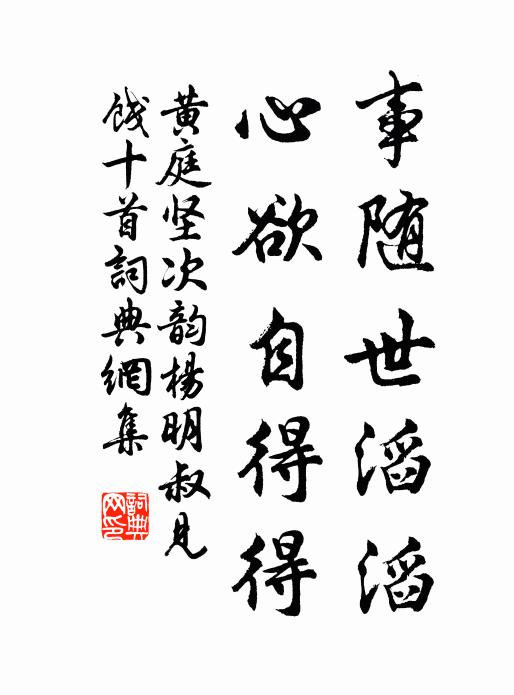 事随世滔滔
心欲自得得
黄庭坚次韵楊明叔見
餞十首詞典網集
詞典网印